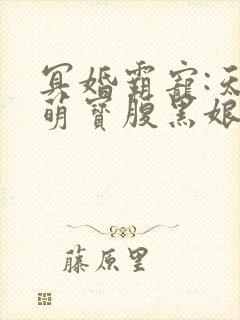 冥婚霸宠:天
萌寶腹黑娘
藤原里